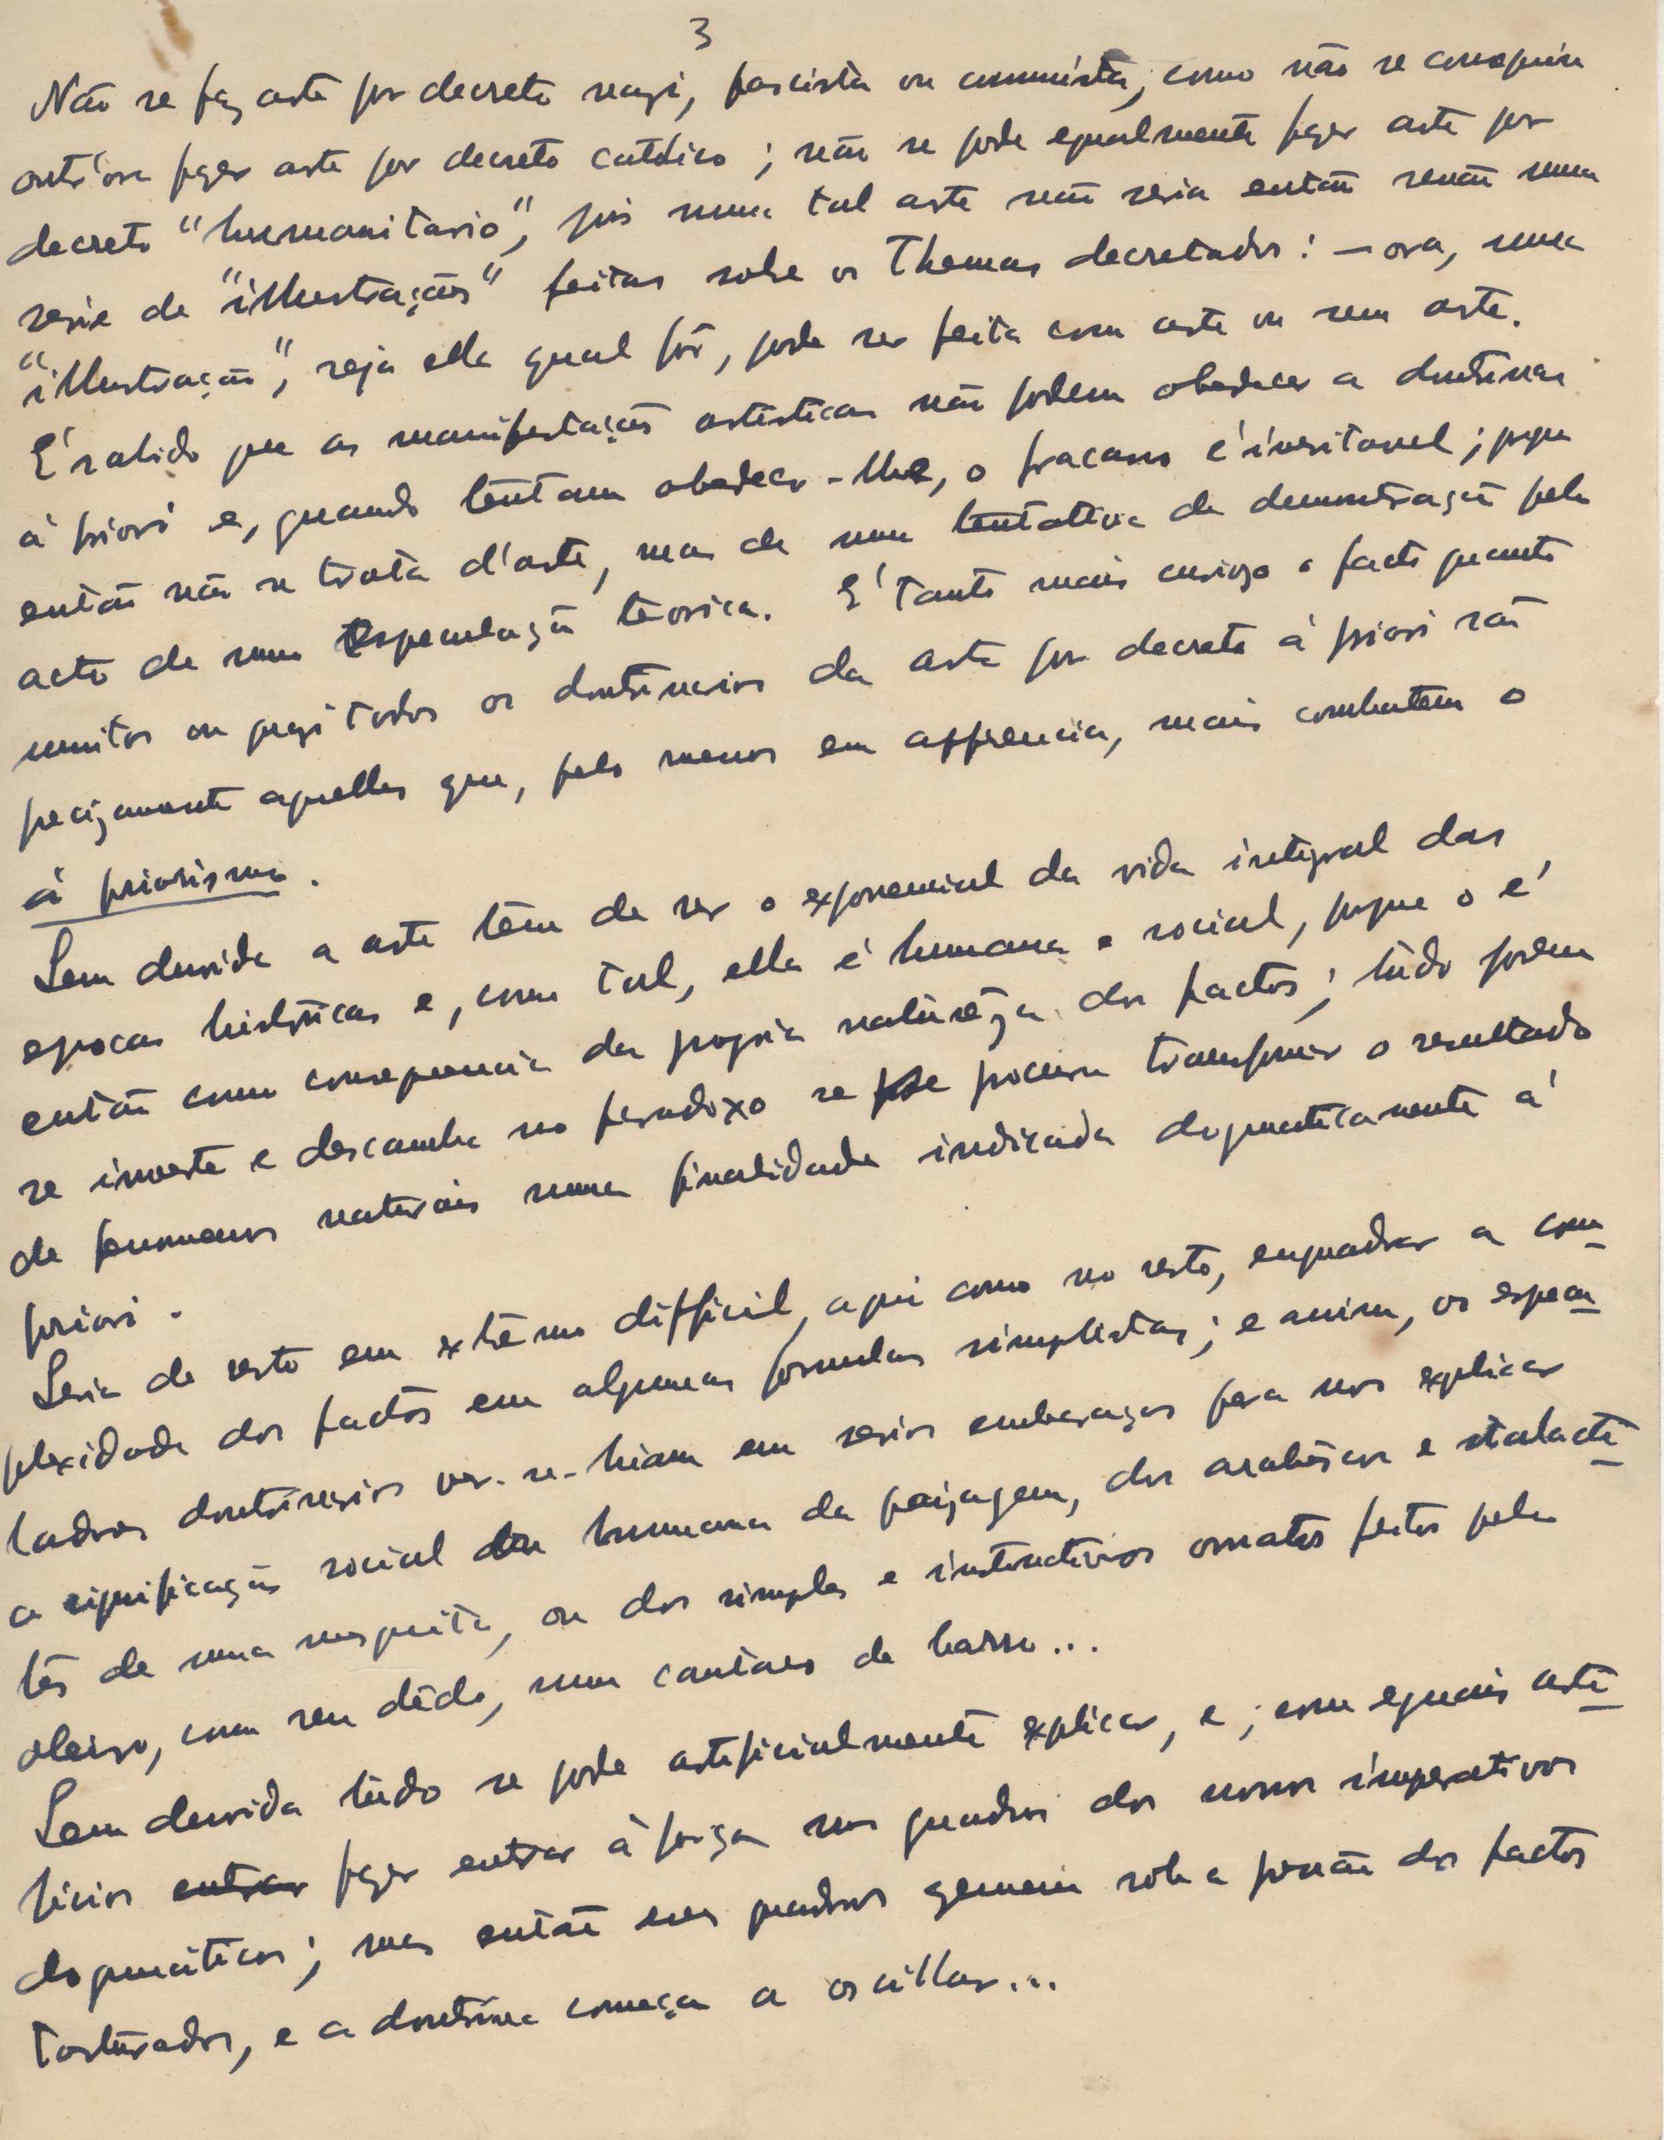 3
Não se faz arte por decreto nazi, fascista ou comunista, como não se conseguiu
outrora fazer arte por decreto catolico; não se pode egualmente fazer arte por
decreto "humanitario", pois numa tal arte não seria então senão uma
serie de "illustrações" feitas sobre os Themas decretados: — ora, uma
"illustração", seja ella qual fôr, pode ser feita com arte ou sem arte.
É sabido que as manifestações artisticas não podem obedecer a doutrinas
à priori e, quando tentam obedecer-lhe, o fracasso é inevitavel; porque
então não se trata d'arte, mas de uma tentativa de demonstração pelo
acto de uma especulação teorica. É tanto mais curiozo o facto quanto
muitos ou quazi todos os doutrinarios da arte por decreto à priori são
precizamente aquelles que, pelo menos em apparencia, mais combatem o
à priorismo.
Sem duvida a arte tem de ser o exponencial da vida integral das
epocas historicas e, como tal, ella é humana e social, porque o é
então como consequencia da propria natureza dos factos; tudo porem
se inverte e descamba no paradoxo se se procura transformar o resultado
de fenomenos naturais numa finalidade indicada dogmaticamente à
priori.
Seria de resto em extremo difficil, aqui como no resto, enquadrar a com
plexidade dos factos em algumas formulas simplistas; e assim, os especu
ladores doutrinarios ver-se-hiam em serios embaraços para nos explicar
a significação social ou humana da paizagem, dos arabescos e stalacti
tes de uma mesquita, ou dos simples e instinctivos ornatos feitos pelo
oleiro, com seu dêdo, num cantaro de barro...
Sem duvida tudo se pode artificialmente explicar, e, com eguais arti
ficios entrar fazer entrar à força nos quadros dos nossos imperativos
dogmaticos; mas então esses quadros gemem sob a pressão dos factos
torturados, e a doutrina começa a oscillar...